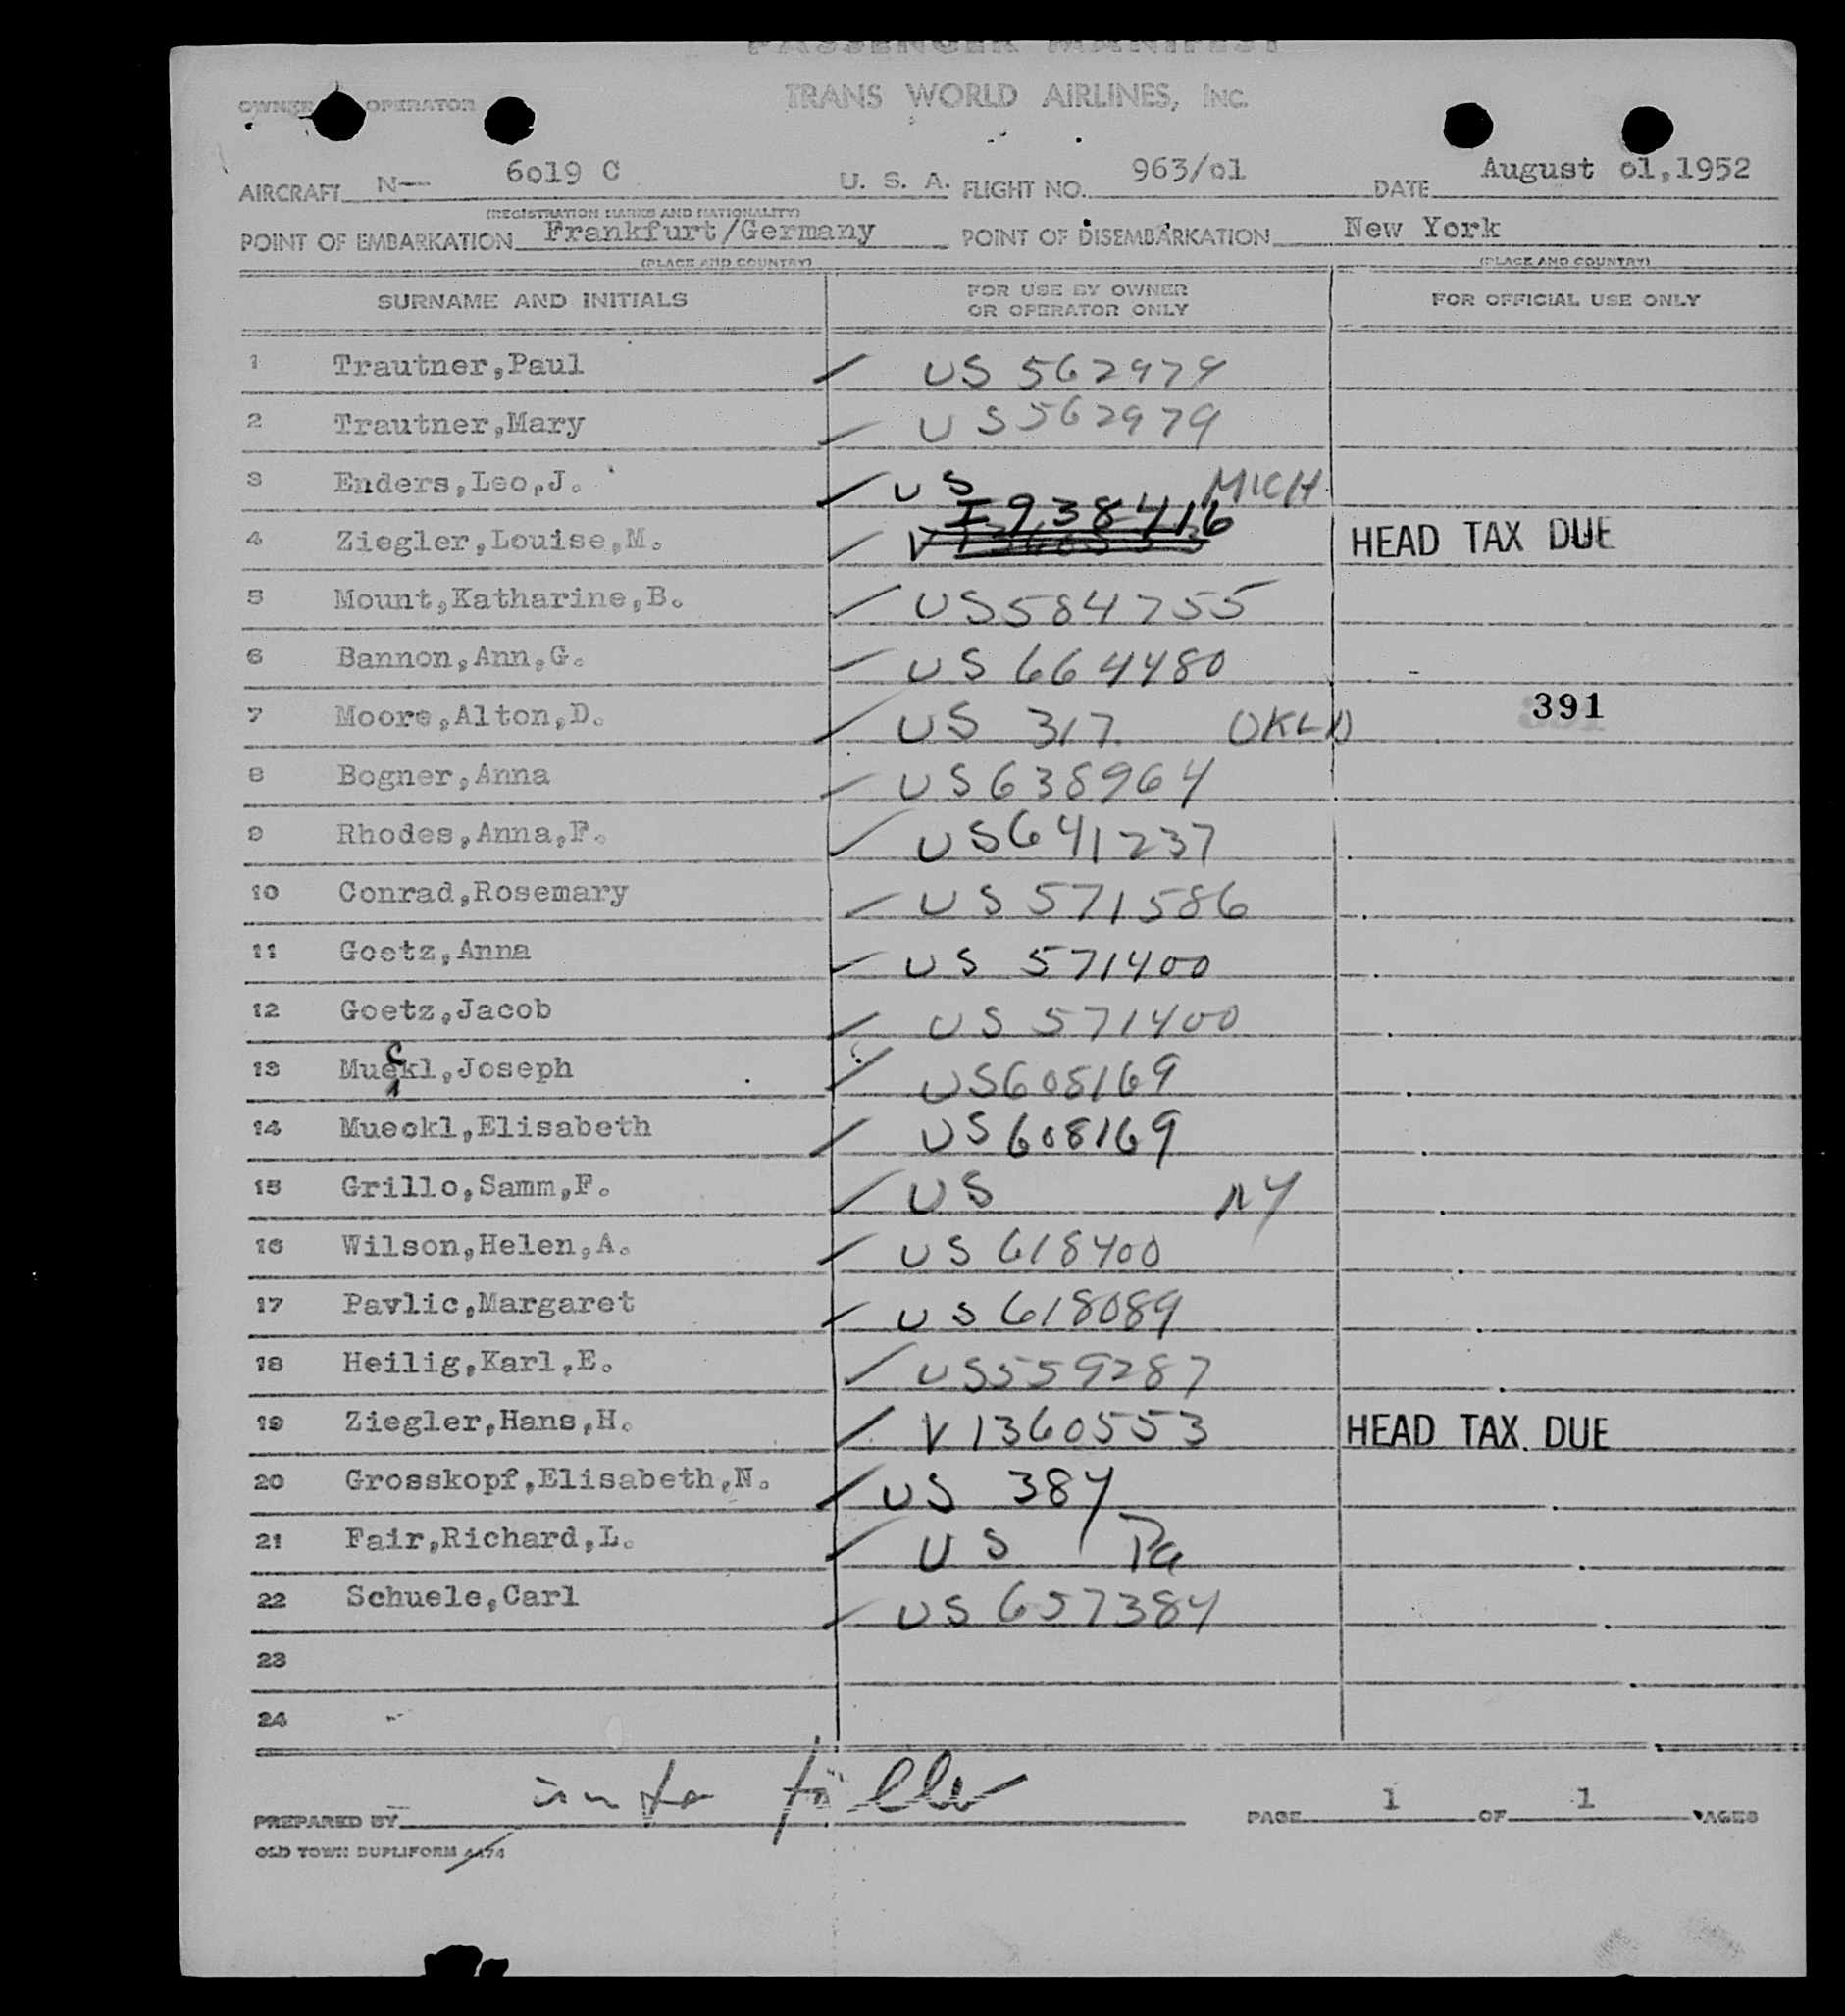 PASSENGER MANIFEST
OWNER OPERATOR
TRANS WORLD AIRLINES, INC.
AIRCRAFT N— 6019 C U. S. A. FLIGHT NO. 963/01 DATE August 01,1952
(REGISTRATION MARKS AND NATIONALITY)
POINT OF EMBARKATION Frankfurt/Germany POINT OF DISEMBARKATION New York
(PLACE AND COUNTRY) (PLACE AND COUNTRY)
SURNAME AND INITIALS FOR USE BY OWNER OR OPERATOR ONLY FOR OFFICIAL USE ONLY
1 Trautner,Paul US 562979
2 Trautner,Mary US 562979
3 Enders,Leo,J. US MICH
4 Ziegler,Louise,M. I 938416 V1360553 HEAD TAX DUE
5 Mount,Katharine,B. US584755
6 Bannon,Ann,G. US 664480
7 Moore,Alton,D. US 317 OKLA 391
8 Bogner,Anna US638964
9 Rhodes,Anna,F. US641237
10 Conrad,Rosemary US 571586
11 Goetz,Anna US 571400
12 Goetz,Jacob US 571400
13 Mueckl,Joseph US608169
14 Mueckl,Elisabeth US608169
15 Grillo,Samm,F. US NY
16 Wilson,Helen,A. US 618400
17 Pavlic,Margaret US 618089
18 Heilig,Karl,E. US559287
19 Ziegler,Hans,H. V1360553 HEAD TAX DUE
20 Grosskopf,Elisabeth,N. US 384
21 Fair,Richard,L. US Pa
22 Schuele,Carl US 657384
23
24
PREPARED BY PAGE 1 OF 1 PAGES
OLD TOWN DUPLIFORM